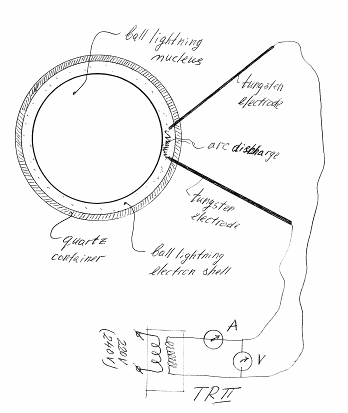 ball lightning
nucleus
tungsten
electrode
arc discharge
tungsten
electrode
quartz
container
ball lightning
electron shell
A
220V
(240V)
V
TR II